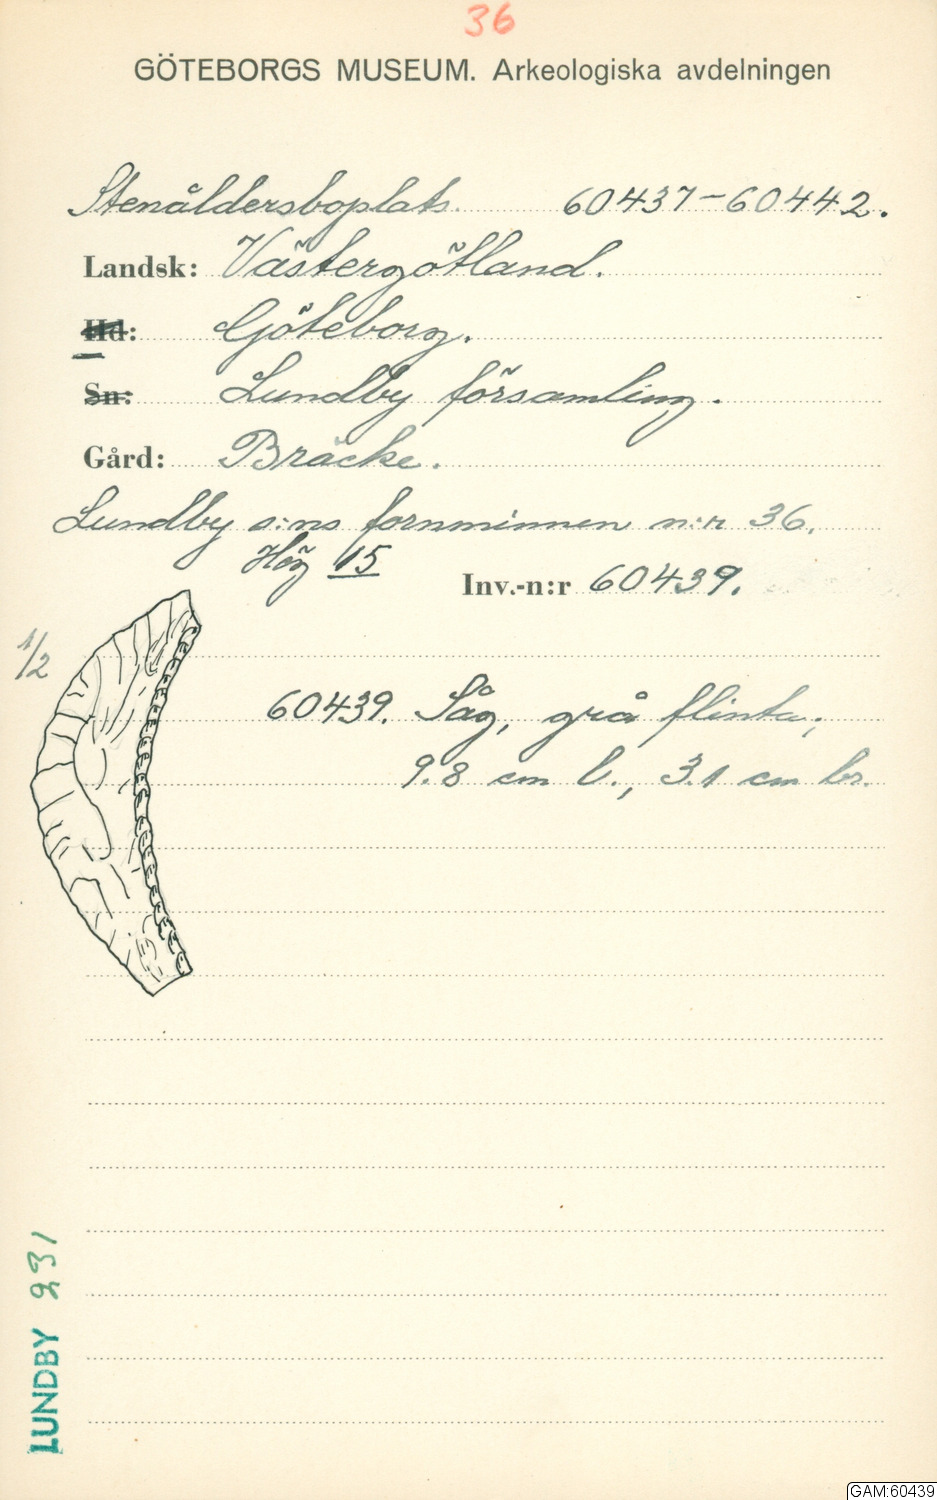 36
GÖTEBORGS MUSEUM. Arkeologiska avdelningen
Stenåldersboplats. 60437-60442.
Landsk: Västergötland.
Hd: Göteborg.
Sn: Lundby församling.
Gård: Bräcke.
Lundby s:ns fornminnen n:r 36.
Hög 15
Inv.-n:r 60439.
1/2
60439. Såg, grå flinta;
9.8 cm l., 3.1 cm br.
LUNDBY 231
GAM:60439